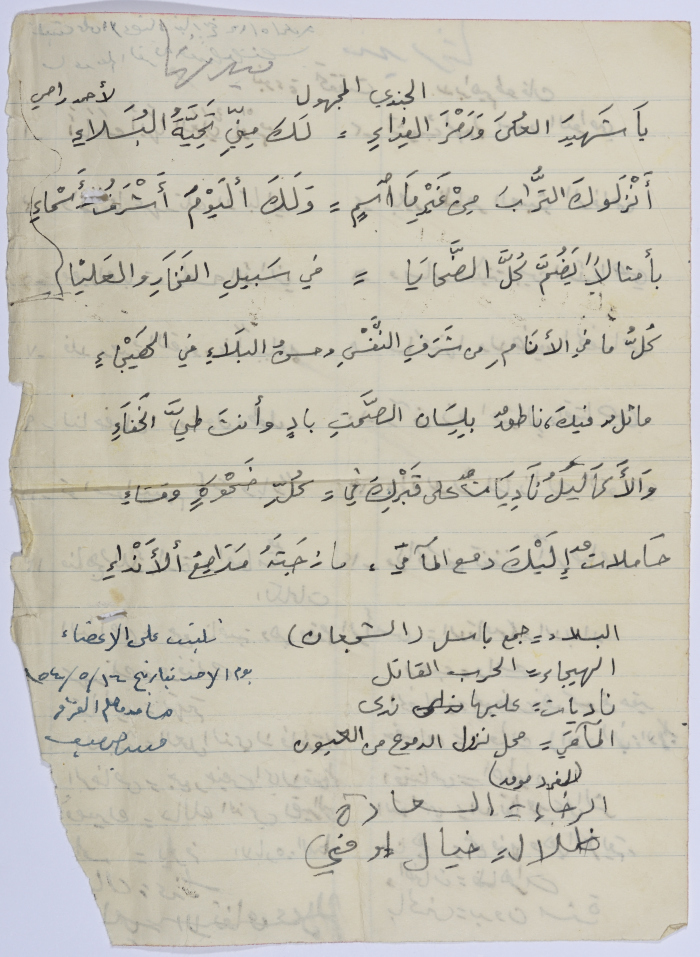 الجندي المجهول لأحمد رامي
يَا شَهِيدَ العُلَى وَرَمْزَ الفِدَاءِ = لَكَ مِنِّي تَحِيَّةُ البُسَلاءِ
أَنْزَلُوكَ التُّرَابَ مِنْ غَيْرِ مَا اسْمٍ = وَلَكَ أليَوْمَ أَشْرَفُ أَسْماءِ
يا مثالاً يَضُمُّ كُلَّ الضَّحايَا = في سَبيلِ الفَخَارِ والعَليَاءِ
كُلُّ ما في الأنَامِ مِن شَرَفِ النَّفْسِ وحسن البَلَاءِ في الهَيْجَاءِ
ماثلٌ فيك، ناطقٌ بِلِسَان الصَّمتِ بادٍ وأنتَ طيَّ الخَفَاءِ
وَالأَكَالِيلُ نَادِيَاتٌ على قَبْرِكَ في = كُلِّ ضَحْوَةٍ ومَسَاءِ
حَاملاتٌ إِلَيْكَ دمع المآقي، ما زجَتْهُ مَدَامِعُ ألأَنْداءِ
البسلاء = جمع باسل (الشجعان)
الهيجاء = الحرب القاتل
ناديات = عليها ندى
المآقي = محل نزول الدموع من العيون
(المفرد موق)
الرخاء = السعادة
ظلال = خيال
تليت على الأعضاء
يوم الاحد بتاريخ